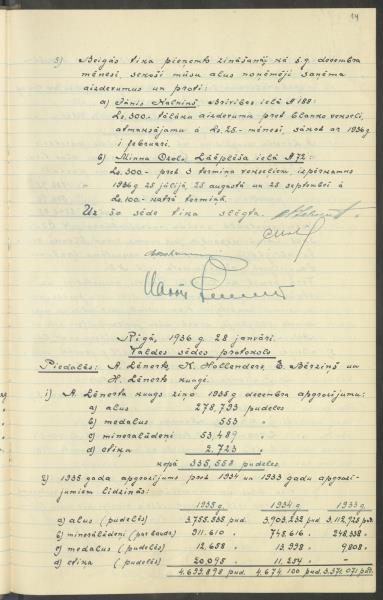 14
5) Beigās tika pieņemts zināšanāj kā š.g. decembra
mēnesī, sekoši mūsu alus noņēmēji saņēma
aizdevumus un proti:
a) Jānis Kalniņš, Brīvības ielā № 188:
Ls. 300.- tālāku aizdevumu pret blanko vekseli,
atmaksājamu á Ls. 25.- mēnesī, sākot ar 1936 g.
1 februari.
b) Minna Ozols, Lāčplēša ielā № 72:
Ls. 300.- pret 3 termiņa vekseliem izpērkamus
1936 g. 25 jūlijā, 25 augustā un 25 septembrī á
Ls. 100.- katrā termiņā.
Uz šo sēde tika slēgta.
Rīgā, 1936 g. 28 janvārī.
Valdes sēdes protokols
Piedalās: A. Lēnerts, K. Hollenders, E. Bērziņš un
H. Lēnerts kungi.
1) A. Lēnerta kungs ziņo 1935 g. decembra apgrozījumu:
a) alus 278,793 pudeles
b) medalus 553 "
c) minerālūdeņi 53,489 "
d) etiķa 2,723 "
kopā 335,558 pudeles
2) 1935 gada apgrozījums pret 1934 un 1933 gadu apgrozī-
jumiem līdzinās:
1935 g. 1934 g. 1933 g.
a) alus (pudelēs) 3.755.535 pud. 3,903,232 pud. 3,112,925 pud.
b) minerālūdeņi (pardauds) 911.610 " 745,616 " 248,338 "
c) medalus (pudelēs) 12.658 " 13,998 " 9,808 "
d) etiķa (pudelēs) 20,095 " 11,254 " -
4,699,898 pud. 4,674,100 pud. 3,371,071 pud.